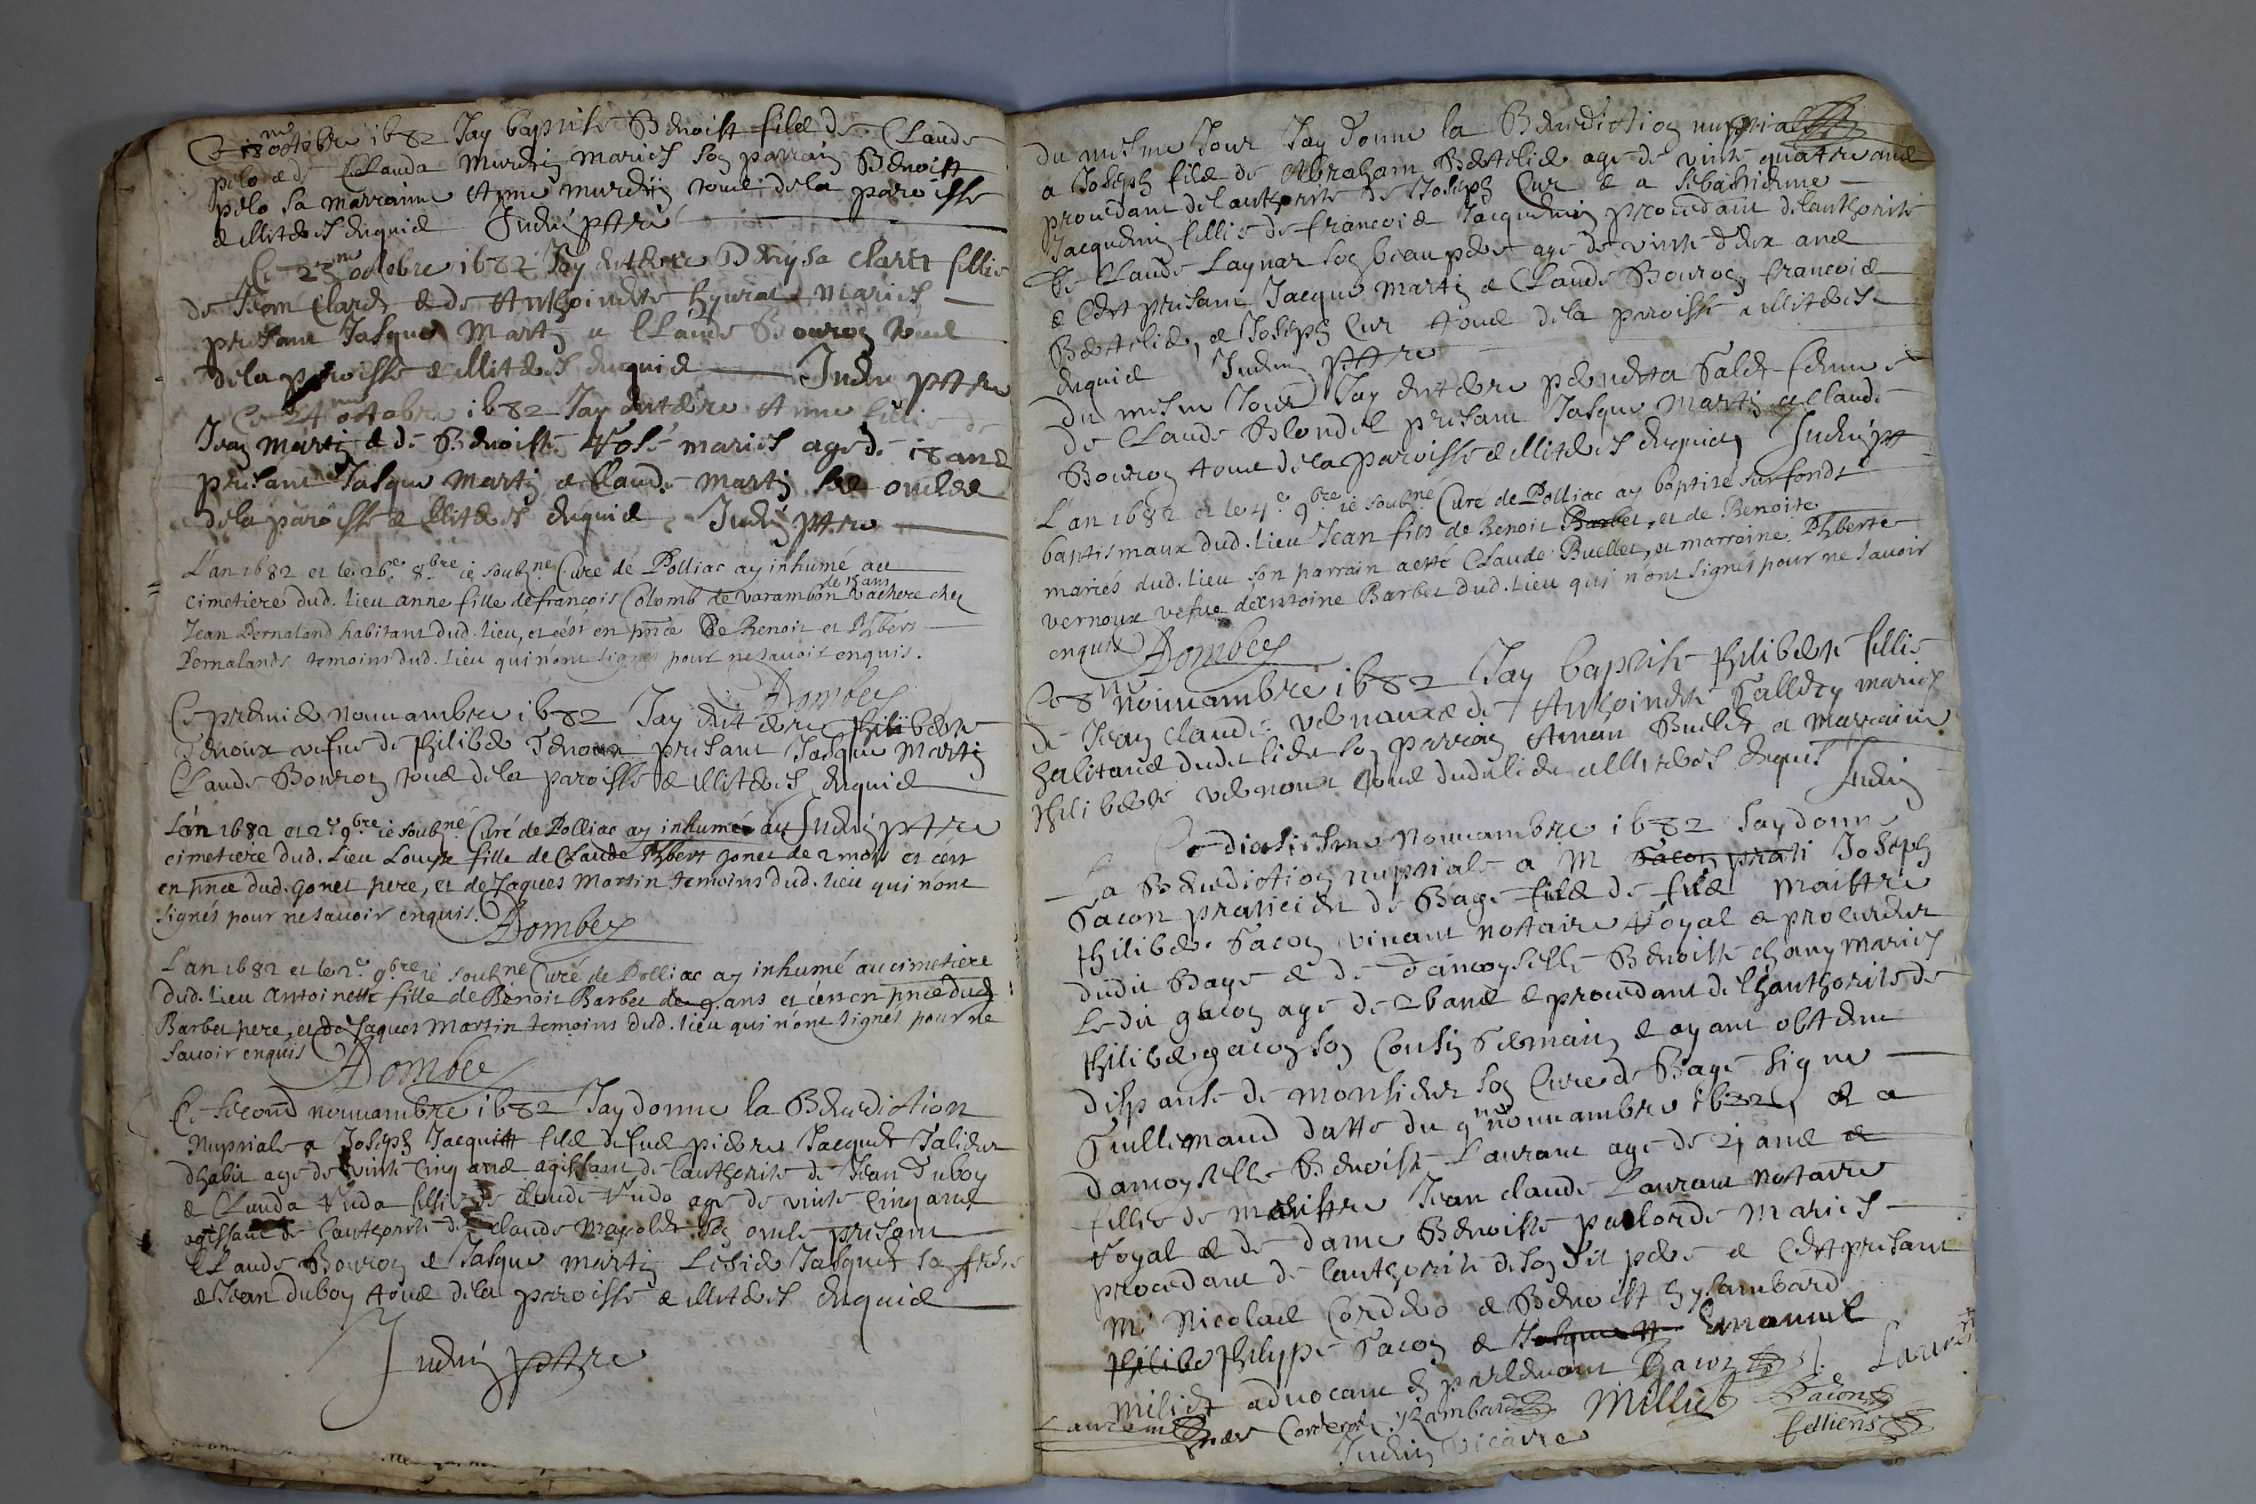 Ce 18me octobre 1682 Jay baptisé Benoist filz de Claude
pelo & de Clauda murdin mariés son parrain Benoist
pelo sa marraine Anne murdin tous de la paroisse
& illiteres enquis Judin ptre
Ce 23me octobre 1682 Jay enterre Denysa Claret fillie
de Jean Claret & de Anthoinette mariés
presant Jasque Martin & Claude Bouron tous
de la paroisse & illiteres enquis Judin ptre
Ce 24me octobre 1682 Jay enterre Anne fillie de
Jean Martin & de Benoiste mariés age de 18 ans
presant Jasque Martin & Claude Martin ses oncles
de la paroisse & illiteres enquis Judin ptre
L'an 1682 et le 26e 8bre ie soubsne Curé de Polliac ay inhumé au
de 15 ans
cimetiere dud. lieu anne fille de françois Colomb de varambon vachere chez
Jean Pernaland habitant dud. lieu, et c'est en pnce de Benoit et Phbert
Pernalands temoins dud. lieu qui n'ont signés pour ne savoir enquis.
Dombey
Ce premier nouuambre 1682 Jay enterre philiberte
Tenoux vefue de philibe Tenoux presant Jasque Martin
Claude Bouron tous de la paroisse & illiteres enquis
L'an 1682 et 2e 9bre ie soubsne Curé de Polliac ay inhumé au Judin ptre
cimetiere dud. lieu Louyse fille de Claude Phbert gonet de 2 mois et c'est
en pnce dud. gonet pere, et de Jaques Martin temoins dud. lieu qui n'ont
signés pour ne savoir enquis. Dombey
L'an 1682 et le 2e 9bre ie soubsne Curé de Polliac ay inhumé au cimetiere
dud. lieu Antoinette fille de Benoit Barbet de 9 ans et c'est en pnce dud
Barbet pere, et de Jaques Martin temoins dud. lieu qui n'ont signés pour ne
savoir enquis Dombey
Ce second nouuambre 1682 Jay donne la Benediction
Nuptiale a Joseph Jacquett filz de fue piere Jacquet Talieur
dhabit age de vinte cinq ans agissant de lauthorite de Jean Duboy
& Clauda Tuda fillie de Claude Tudo age de vinte cinq ans
agissant de lauthorite de Claude Mayolet son oncle presant
Claude Bouron & Jasque Martin Lisie Jasquet son frere
& Jean duboy tous de la paroisse & illiteres enquis
Judin ptre
Du mesme Jour Jay donne la Benediction nuptiale
a Joseph filz de Abraham Bertelie age de vinte quatre ans
procedant de lauthorite de Joseph Cur & a sebastienne
Jacquemin fillie de francois Jacquemin procedant de lauthorite
de Claude Laynar son beau pere age de vinte deux ans
& C'est presant Jacque Martin & Claude Bouron francois
Bertelie, & Joseph Cur tous de la paroisse & illiteres
enquis Judin ptre
Du mesme Jour Jay enterre perneta Galet femme
de Claude Blondel presant Jasque Martin & Claude
Bouron tous de la paroisse & illiteres enquis Judin pt
L'an 1682 et le 4e 9bre ie soubsne Curé de Polliac ay baptisé sur fonds
baptismaux dud. lieu Jean fils de Benoit Barbet, et de Benoite
mariés dud. lieu son parrain a esté Claude Buellet, et marraine Phberte
vernoux vefue d'Antoine Barbet dud. lieu qui n'ont signés pour ne savoir
enquis Dombey
Ce 8me nouuambre 1682 Jay baptisé philiberte fillie
de Jean Claude vernoux & de Anthoinette Gallety mariés
habitans dudit lieu son parrain Aman Buelet & marraine
philiberte vernoux tous dudit lieu illiteres enquis Judin
Ce diesiesme nouuambre 1682 Jay donne
la Benediction nuptiale a M Gacon prati Joseph
Gacon praticien de Bage filz de filz maistre
philibe Gacon vivant nottaire Royal & procureur
dudit Bage & de damoyselle Benoiste chany mariés
Ledit gacon age de 26 ans & procedant de lhauthorite de
philibe gacon son Cousin Germain & ayant obtenu
dispanse de monsieur son Cure de Bage signe
Guillemaud datte du 9me nouuambre 1682, & a
damoyselle Benoiste Laurant age de 21 ans &
fillie de maistre Jean Claude Laurant nottaire
Royal & de dame Benoiste palorde mariés
procedant de lauthorite de son dit pere & C'est presant
Mr Nicolas Cordero & Benoist hysambard
philibe philype Gacon & Jasque Emanuel
miliet advocant en parlemant Gacon Laurent
Laurent Cordero ysambard Milliet Gacon
felliens
Judin vicaire